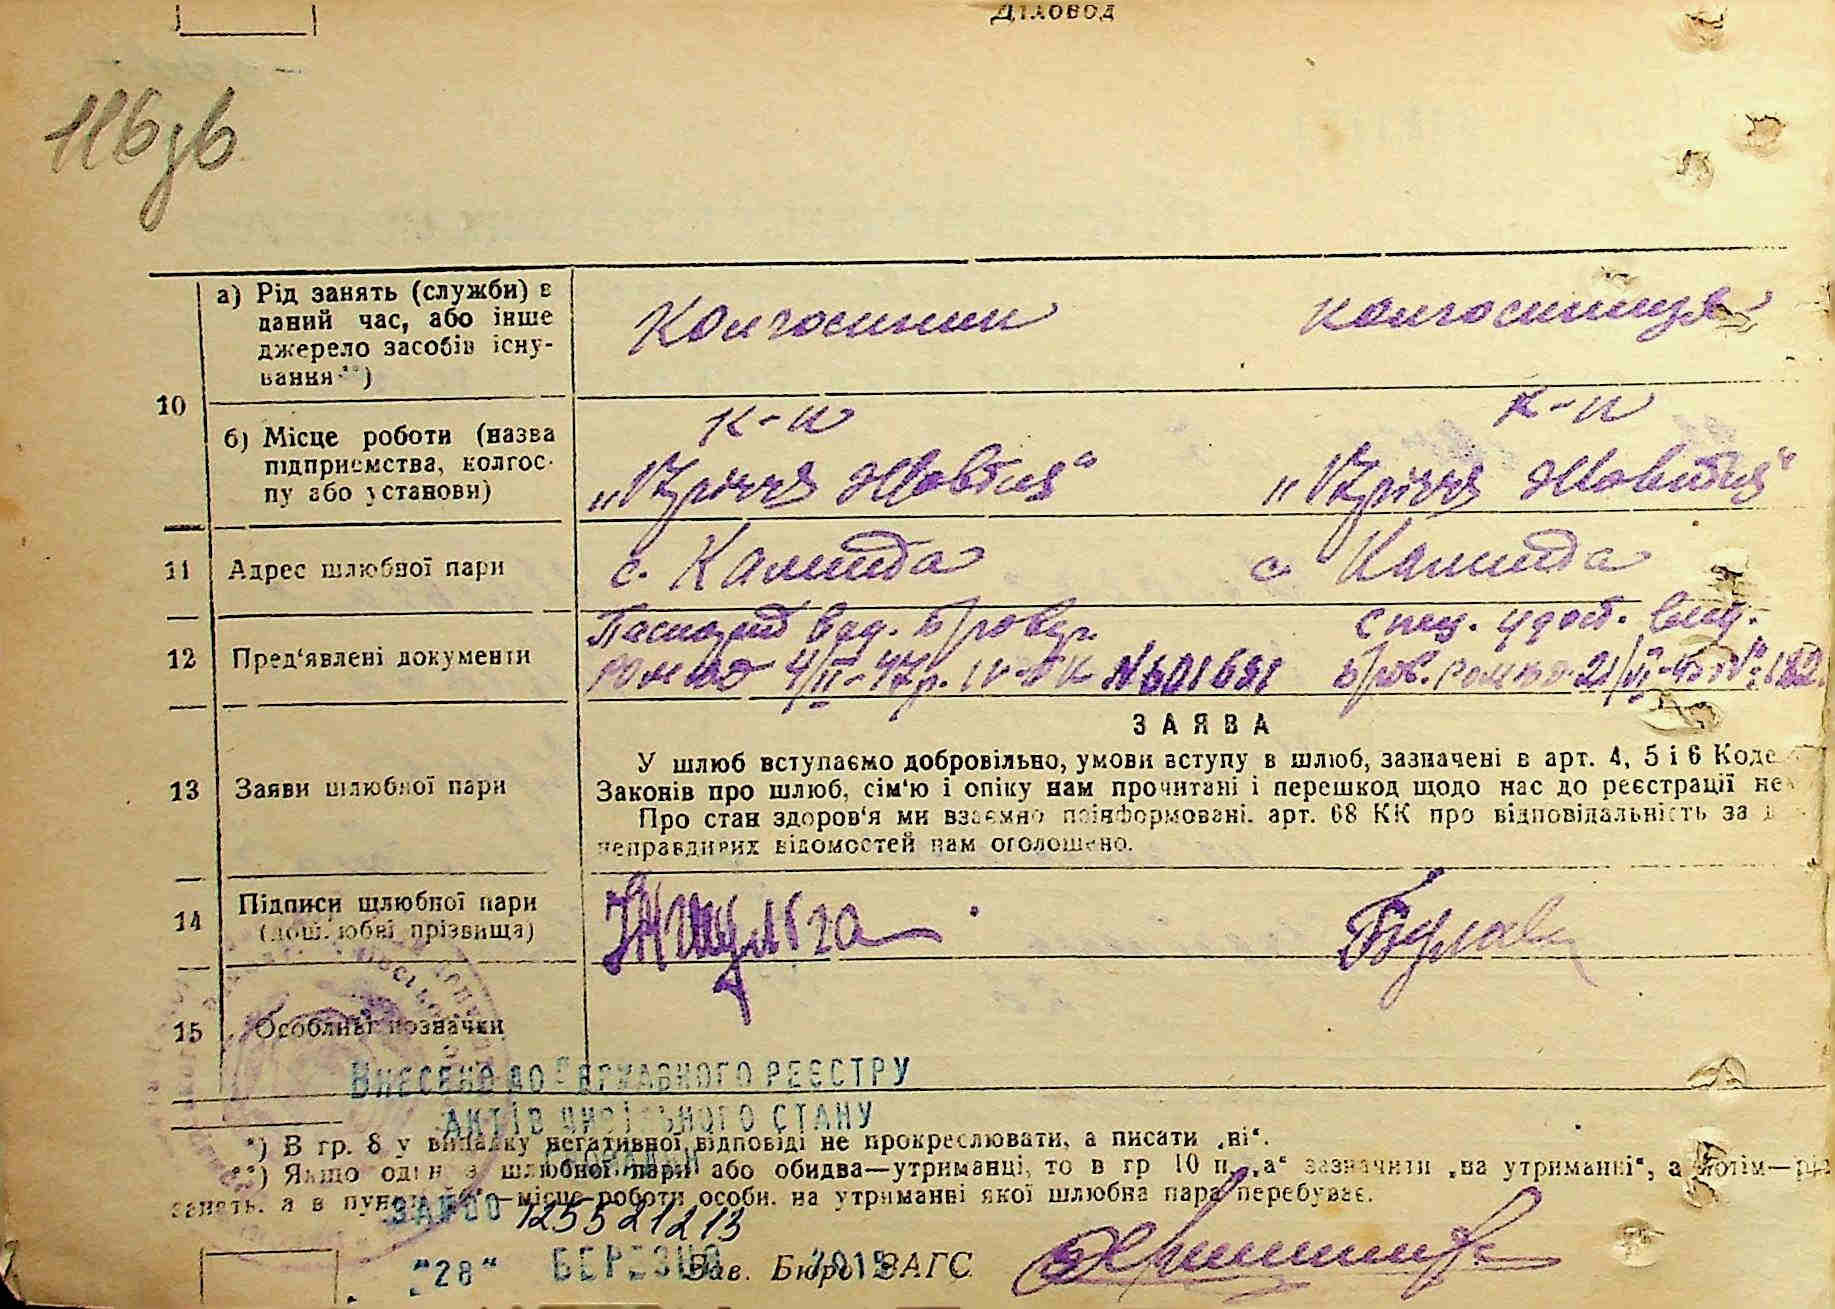 Діловод
116 зв
10
а) Рід занять (служби) в
даний час, або інше
джерело засобів існу-
вання **)
Колгоспник
колгоспниця
б) Місце роботи (назва
підприємства, колгос-
пу або установи)
к-п
„17річчя Жовтня"
к-п
„17річчя Жовтня"
11 Адрес шлюбної пари
с. Калита
с. Калита
12 Пред'явлені документи
Паспорт вид.
4/II-47р. IV № 601631
спец. удост. вид.
13 Заяви шлюбної пари
ЗАЯВА
У шлюб вступаємо добровільно, умови вступу в шлюб, зазначені в арт. 4, 5 і 6 Коде
Законів про шлюб, сім'ю і опіку нам прочитані і перешкод щодо нас до реєстрації не
Про стан здоров'я ми взаємно поінформовані. арт. 68 КК про відповідальність за
неправдивих відомостей нам оголошено.
14 Підписи шлюбної пари
(дошлюбні прізвища)
15 Особливі позначки
Внесено до Державного реєстру
актів цивільного стану
*) В гр. 8 у випадку негативної відповіді не прокреслювати, а писати „ні".
**) Якщо один з шлюбної пари або обидва—утриманці, то в гр 10 п. „а" зазначити „на утриманні", а потім—рід
занять, а в пункті „б"—місце роботи особи, на утриманні якої шлюбна пара перебуває.
125521213
"28" БЕРЕЗНЯ
Зав. Бюро ЗАГС